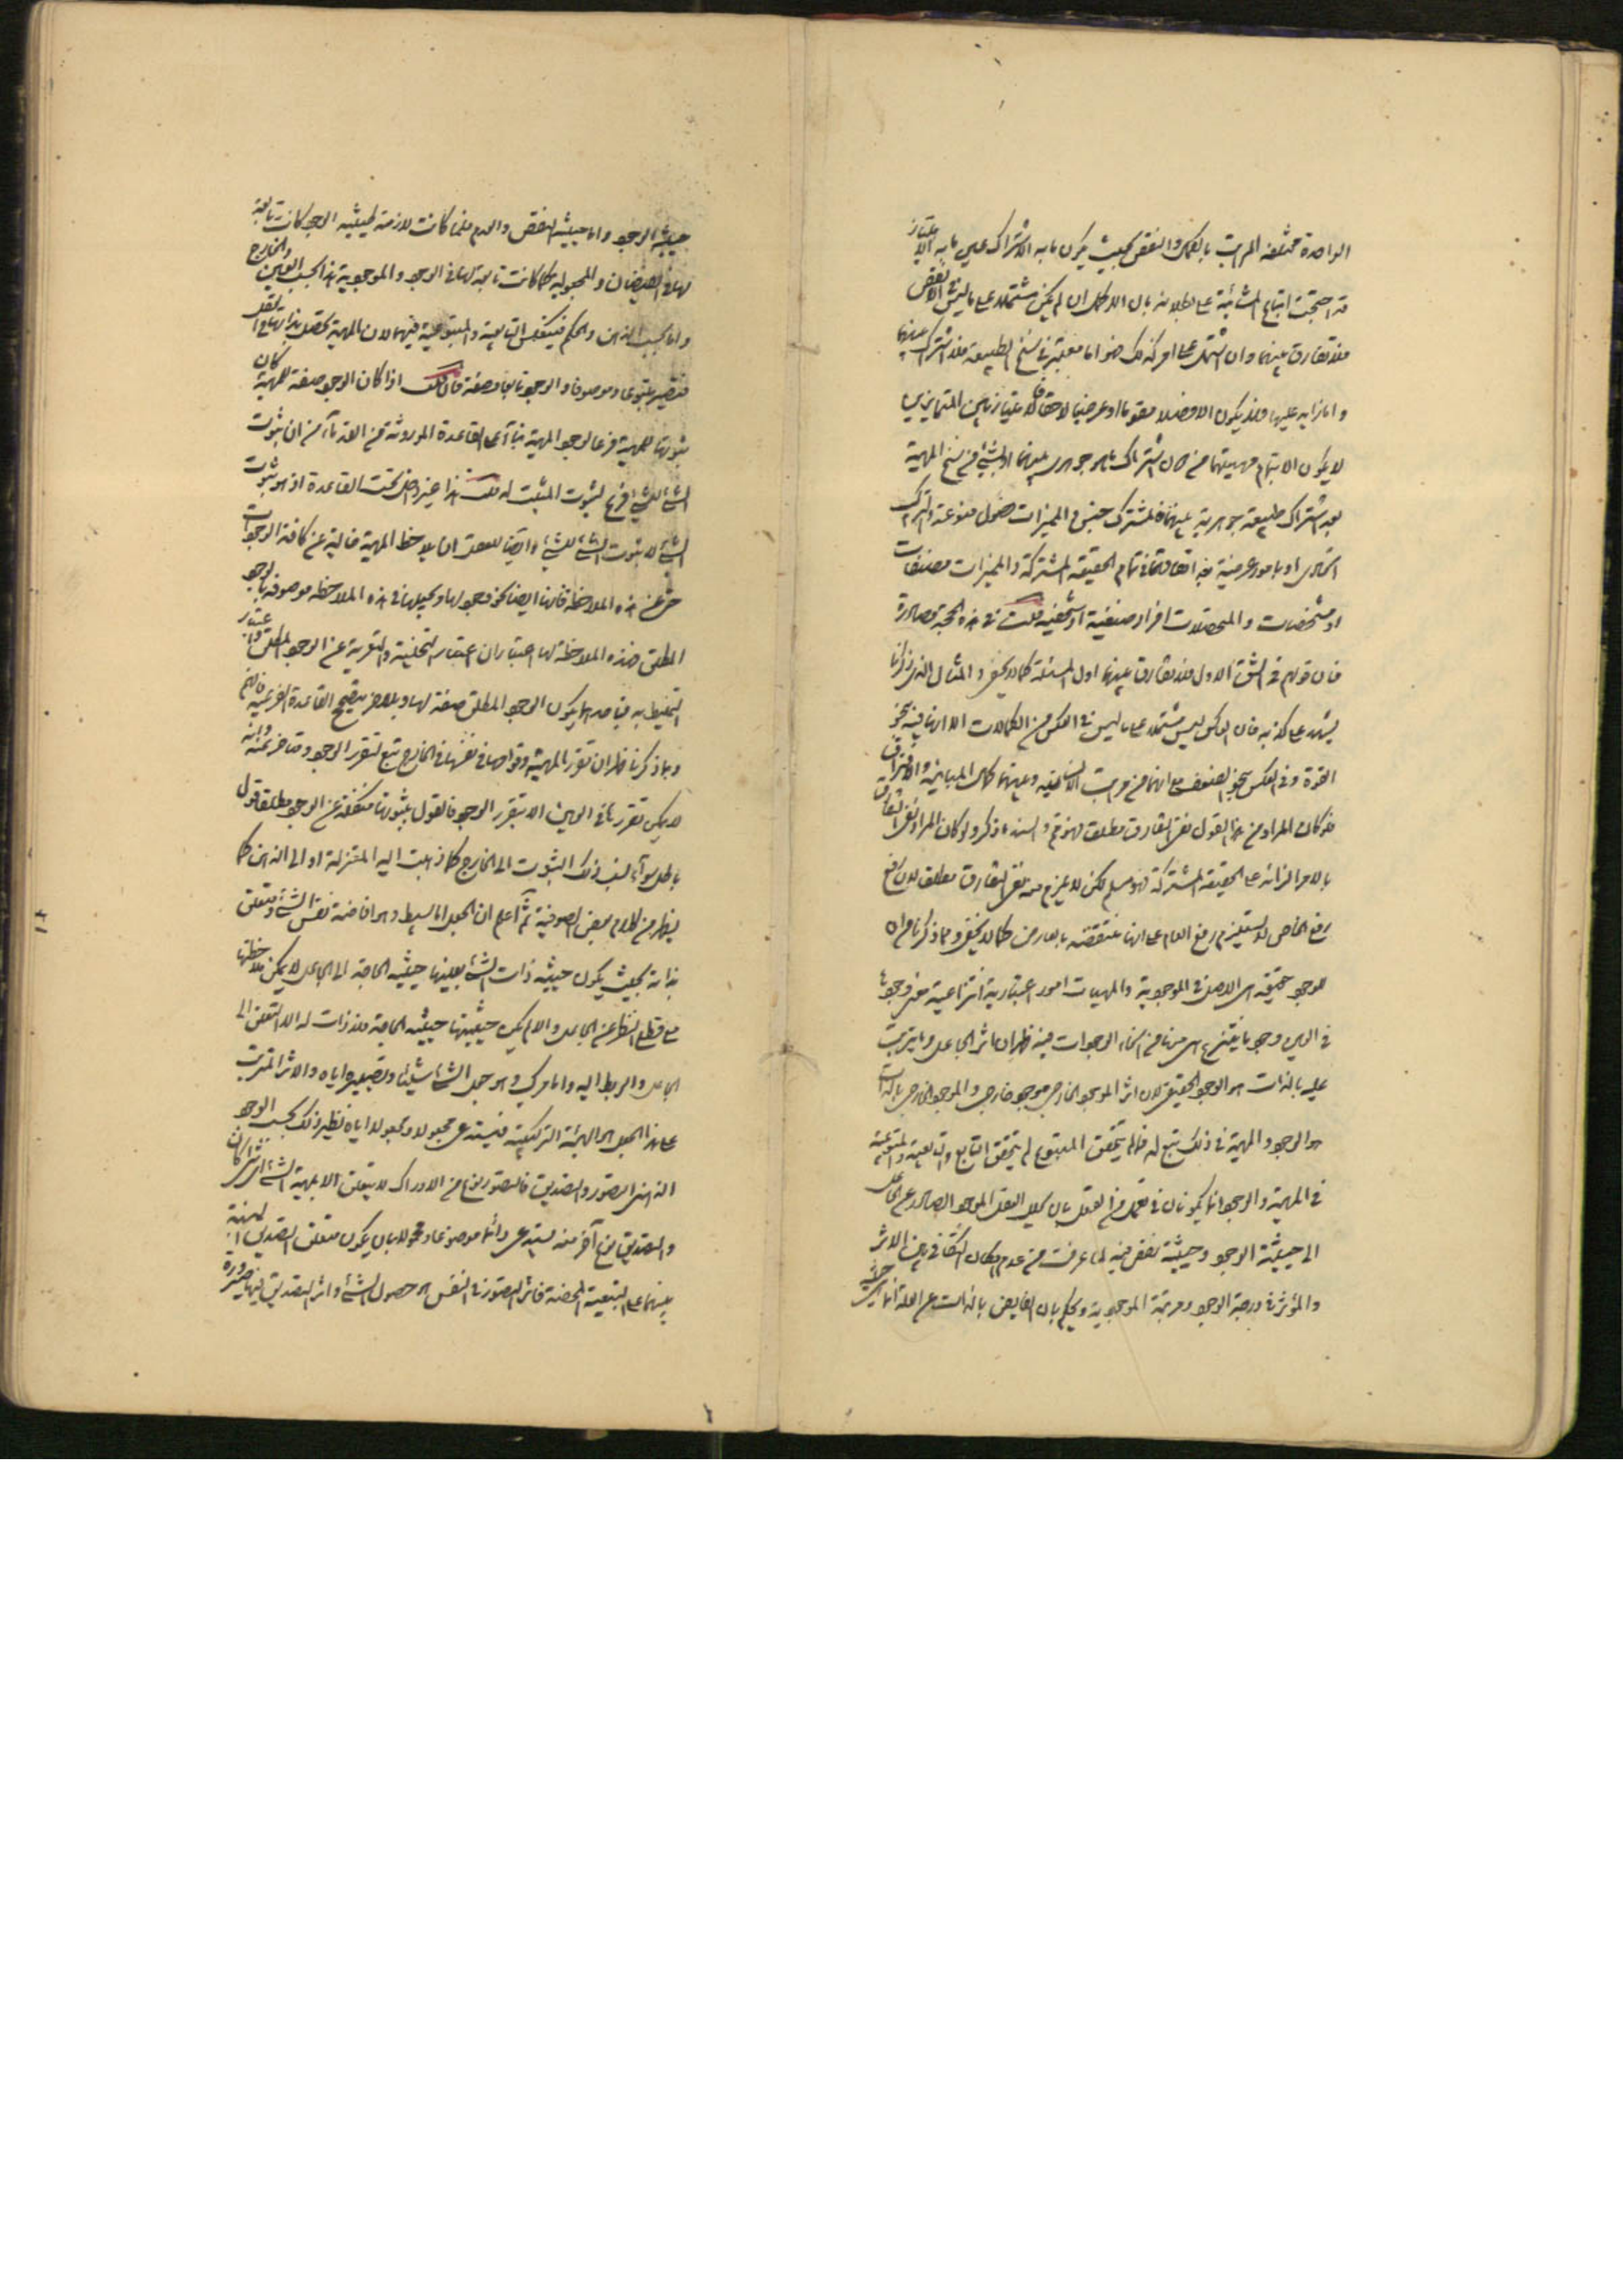 الواحدة مختلفة المراتب بالكمال والنقص بحيث يكون ما به الاشتراك عين ما به الامتياز
قد احتجت اتباع المشائية على بطلانه بان الاكمل ان لم يكن مشتملا على ما ليس في الانقص
فلا تفارق بينهما وان اشتمل على امر كذلك فهو اما معتبر في سنخ الطبيعة فلا اشتراك بينهما
واما زايد عليها فلا يكون الا فصلا مقوما او عرضيا لاحقا فالامتياز بين المتمايزين
لا يكون الا بتمام مهيتهما من دون اشتراك ما جوهري بينهما او بشيء من سنخ المهية
بعد اشتراك طبيعة جوهرية بينهما فالمشترك جنس والمميزات فصول منوعة والتركيب
اتحادي او بامور عرضية بعد اتفاقهما في تمام الحقيقة المشتركة والمميزات مصنفات
او مشخصات والمتحصلات افراد صنفية او شخصية قلت في هذه الحجة مصادرة
فان قولهم في الشق الاول فلا تفارق بينهما اول المسئلة كما لا يخفى والمثال الذي ذكرنا
يشهد على كذبه فان العكس ليس مشتملا على ما ليس في العكس من الكمالات الا انها فيه بنحو
القوة وفي العكس بنحو الضعف مع انهما من مراتب الانسانية وبينهما كمال المباينة والافتراق
فلو كان المراد من هذا القول نفي التفارق مطلقا فهو كما ذكر ولو كان المراد نفي التفارق
بالامر الزائد على الحقيقة المشتركة فهو مسلم لكن لا يلزم منه نفي التفارق مطلقا لان رفع
رفع الخاص لا يستلزم رفع العام على انها منتقضة بالعارض كما لا يخفى ومما ذكرنا من ان
للوجود حقيقة هي الاصل في الموجودية والمهيات امور اعتبارية انتزاعية فوجودها
في العين وجود ما ينتزع هي منها من انحاء الوجودات فيه ظهر ان اثر الجاعل وما يترتب
عليه بالذات هو الوجود الحقيقي لان اثر الموجود الخارجي موجود خارجي والموجود الخارجي بالذات
هو الوجود والمهية في ذلك تبع له فما لم يتحقق المتبوع لم يتحقق التابع والتابعية والمتبوعية
في المهية والوجود انما يكونان في تعمل من العقل بان يحلل العقل الموجود الصادر عن الجاعل
الى حيثية الوجود وحيثية نقص فيه لما عرفت من عدم امكان التكافي بين الاثر
والمؤثر في درجة الوجود ومرتبة الموجودية ويحكم بان الفايض بالذات عن العلة انما هي
حيثية الوجود واما حيثية النقص والعدم فلما كانت لازمة لحيثية الوجود كانت تابعة
لها في الفيضان والمجعولية كما كانت تابعة لها في الوجود والموجودية هذا بحسب العين والخارج
واما بحسب الذهن والحكم فينعكس التابعية والمتبوعية فيهما لان المهية تحصل بذاتها في العقل
فتصير متبوعا وموصوفا والوجود تابعا وصفة فان قلت اذا كان الوجود صفة للمهية كان
ثبوتها للمهية فرعا لوجود المهية بناء على القاعدة الموروثة من القدماء من ان ثبوت
الشيء للشيء فرع لثبوت المثبت له قلت هذا غير داخل تحت القاعدة اذ هو ثبوت
الشيء لا ثبوت الشيء للشيء وايضا للعقل ان يلاحظ المهية خالية عن كافة الوجودات
حتى عن هذه الملاحظة فانها ايضا نحو وجود لها ويجعلها في هذه الملاحظة موصوفة بالوجود
المطلق فهذه الملاحظة لها اعتباران اعتبار التخلية والتعرية عن الوجود المطلق واعتبار
التخليط به فباحدهما يكون الوجود المطلق صفة لها وبالآخر يصح القاعدة الفرعية فافهم
وبما ذكرنا ظهر ان تقرر المهية وقوامها في نفسها في الخارج تبع لتقرر الوجود ومتاخر عنه وانه
لا يمكن تقررها في العين الا بتقرر الوجود فالقول بثبوتها منفكة عن الوجود مطلقا قول
باطل سواء نسب ذلك الثبوت الى الخارج كما ذهبت اليه المعتزلة او الى الذهن كما
يظهر من كلام بعض الصوفية ثم اعلم ان الجعل اما بسيط وهو افاضة نفس الشيء متعلق
بذاته بحيث يكون حيثية ذات الشيء بعينها حيثية الحاجة الى الجاعل لا يمكن ملاحظتها
مع قطع النظر عن الجاعل والا لم يكن حيثيتها حيثية الحاجة فلا ذات له الا التعلق الى
الجاعل والربط اليه واما مركب وهو جعل الشيء شيئا وتصييره اياه والاثر المترتب
على هذا الجعل هو الهيئة التركيبية فيستدعي مجعولا ومجعولا اياه نظير ذلك بحسب الوجود
الذهني التصور والتصديق فالتصور نوع من الادراك لا يتعلق الا بمهية الشيء اي شيء كان
والتصديق نوع آخر منه يستدعي دائما موضوعا ومحمولا بان يكون متعلق التصديق النسبة
بينهما على التبعية المحضة فاثر التصور في النفس هو حصول الشيء واثر التصديق فيها صيرورة